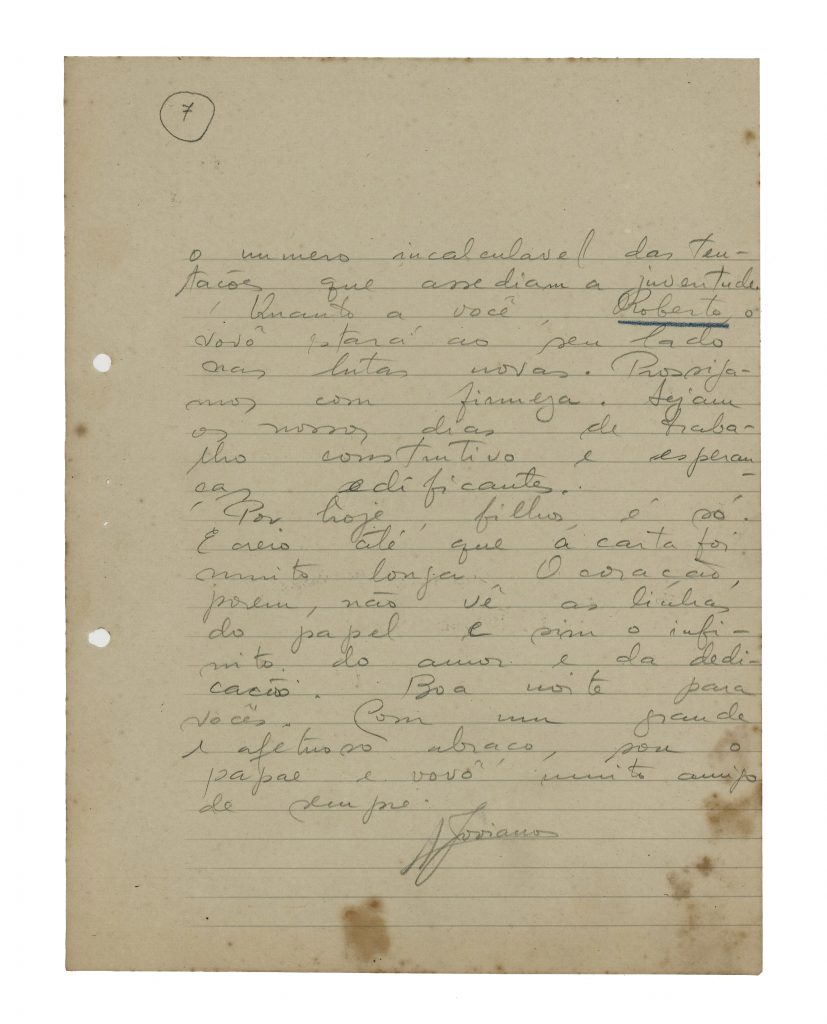 7
o numero incalculavel das ten-
tações que assediam a juventude.
Quanto a você, Roberto, o
vovô estará ao seu lado
nas lutas novas. Prossiga-
mos com firmeza. Sejam
os nossos dias de traba-
lho construtivo e esperan-
ças edificantes.
Por hoje, filhos, é só.
E creio até que a carta foi
muito longa. O coração,
porem, não vê as linhas
do papel e sim o infi-
nito do amor e da dedi-
cação. Boa noite para
vocês. Com um grande
e afetuoso abraço, sou o
papae e vovô muito amigo
de sempre.
Joviano